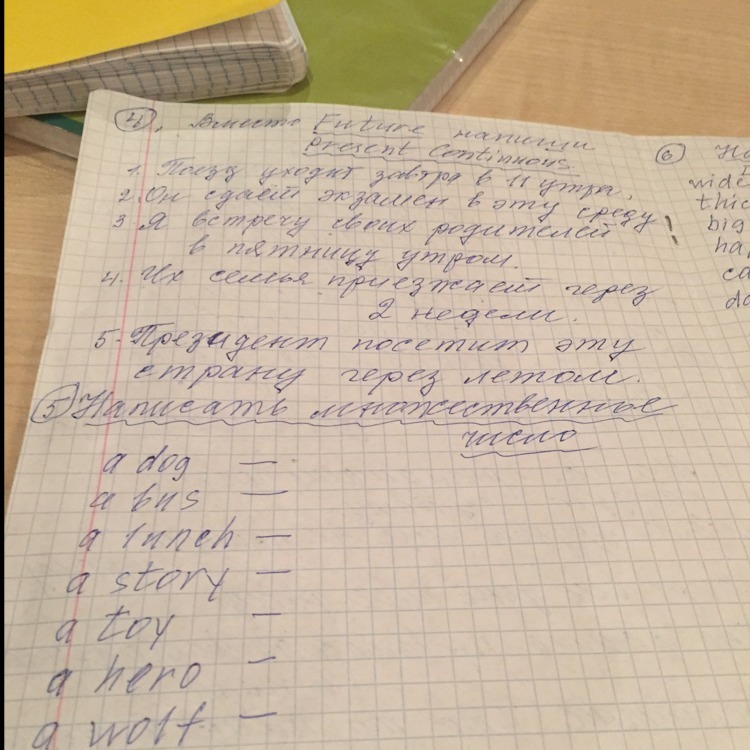 4. Вместо Future напиши
Present Continuous.
1. Поезд уходит завтра в 11 утра.
2. Он сдаёт экзамен в эту среду
3 Я встречу своих родителей
в пятницу утром.
4. Их семья приезжает через
2 недели.
5. Президент посетит эту
страну через летом.
5 Написать множественное
число
a dog —
a bus —
a lunch —
a story —
a toy —
a hero —
a wolf —
6
wide
thic
big